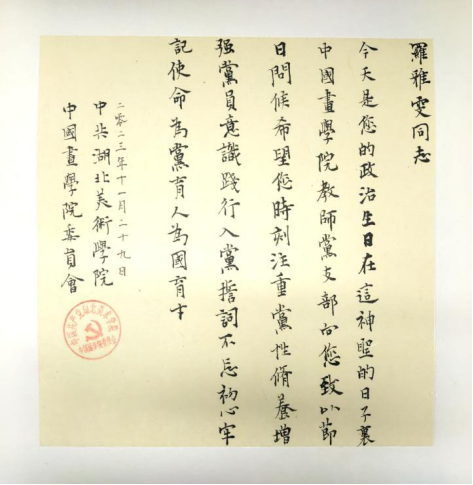 羅雅雯同志
今天是您的政治生日在這神聖的日子裏
中國畫學院教師黨支部向您致以節
日問候希望您時刻注重黨性脩養增
强黨員意識踐行入黨誓詞不忘初心牢
記使命為黨育人為國育才
二零二三年十一月二十九日
中共湖北美術學院
中國畫學院委員會